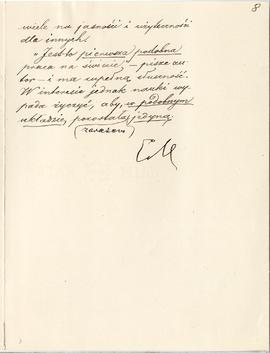 8
wiele na jasności i użyteczności
dla innych.
"Jest to pierwsza podobna
praca na świecie", – pisze au-
tor – i ma zupełną słuszność.
W interesie jednak nauki wy-
pada życzyć, aby, w podobnym
układzie, pozostała jedyną.
(zarazem)
EM